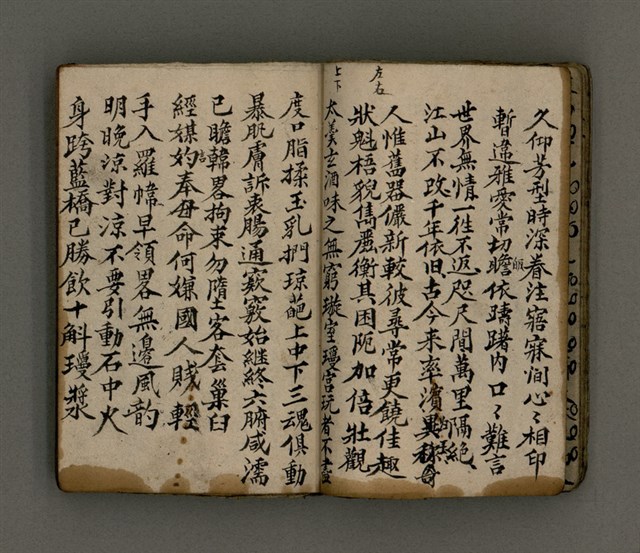 久仰芳型時深眷注寤寐洞心〻相印
暫違雅愛常切瞻依躊躇內口〻難言
世界無情一徃不返咫尺間萬里隔絕
江山不改千年依旧古今来率濱異稱奇
左右
人惟舊器儼新較彼尋常更饒佳趣
狀魁梧貌雋嚴衡其困阨加倍壯觀
上下
太羮玄酒味之無窮璇室瓊宮玩者不盡
度口脂揉玉乳捫琼葩上中下三魂俱動
暴肌膚訴衷腸通竅竅始継終六腑咸濡
已瞻韓畧拘束勿隋士客套巢臼
經媒妁言奉母命何嫌國人賤輕
手入羅幃早領畧無邊風韵
明晚凉對凉不要引動石中火
身跨藍橋已勝飲十斛瓊漿